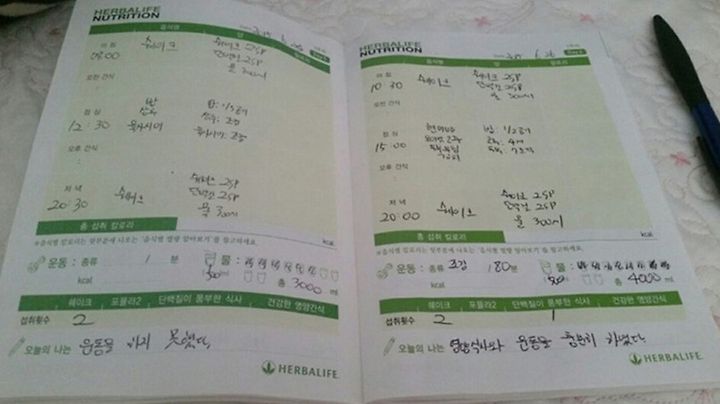 HERBALIFE
NUTRITION
음식명 양 칼로리
아침 쉐이크 쉐이크 2SP
08:00 단백질 2SP
물 300ml
오전 간식
점심 밥 밥: 1/3공기
12:30
오후 간식
저녁 쉐이크 2SP
20:30 쉐이크 단백질 2SP
물 300ml
총 섭취 칼로리 kcal
※음식별 칼로리는 뒷부분에 나오는 '음식별 열량 알아보기'를 참고하세요.
운동 : 종류 / 분 물 :
kcal 500ml 총 3000 ml
쉐이크 포뮬라2 단백질이 풍부한 식사 건강한 영양간식
섭취횟수 2
오늘의 나는 운동을 하지 못했다.
HERBALIFE
HERBALIFE
NUTRITION
6 26
음식명 양 칼로리
아침 쉐이크 쉐이크 2SP
10:30 단백질 2SP
물 300ml
오전 간식
점심 밥: 1/2공기
15:00
오후 간식
저녁 쉐이크 2SP
20:00 쉐이크 단백질 2SP
물 300ml
총 섭취 칼로리 kcal
※음식별 칼로리는 뒷부분에 나오는 '음식별 열량 알아보기'를 참고하세요.
운동 : 종류 조깅 180분 물 :
kcal 500ml 총 4000 ml
쉐이크 포뮬라2 단백질이 풍부한 식사 건강한 영양간식
섭취횟수 2 1
오늘의 나는 영양식사와 운동을 충분히 하였다.
HERBALIFE